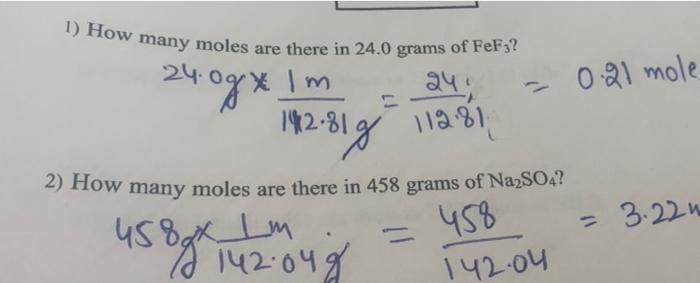 1) How many moles are there in 24.0 grams of FeF₃?
24.0g × 1 m / 112.81 g = 24 / 112.81 = 0.21 mole
2) How many moles are there in 458 grams of Na₂SO₄?
458g × 1 m / 142.04 g = 458 / 142.04 = 3.22